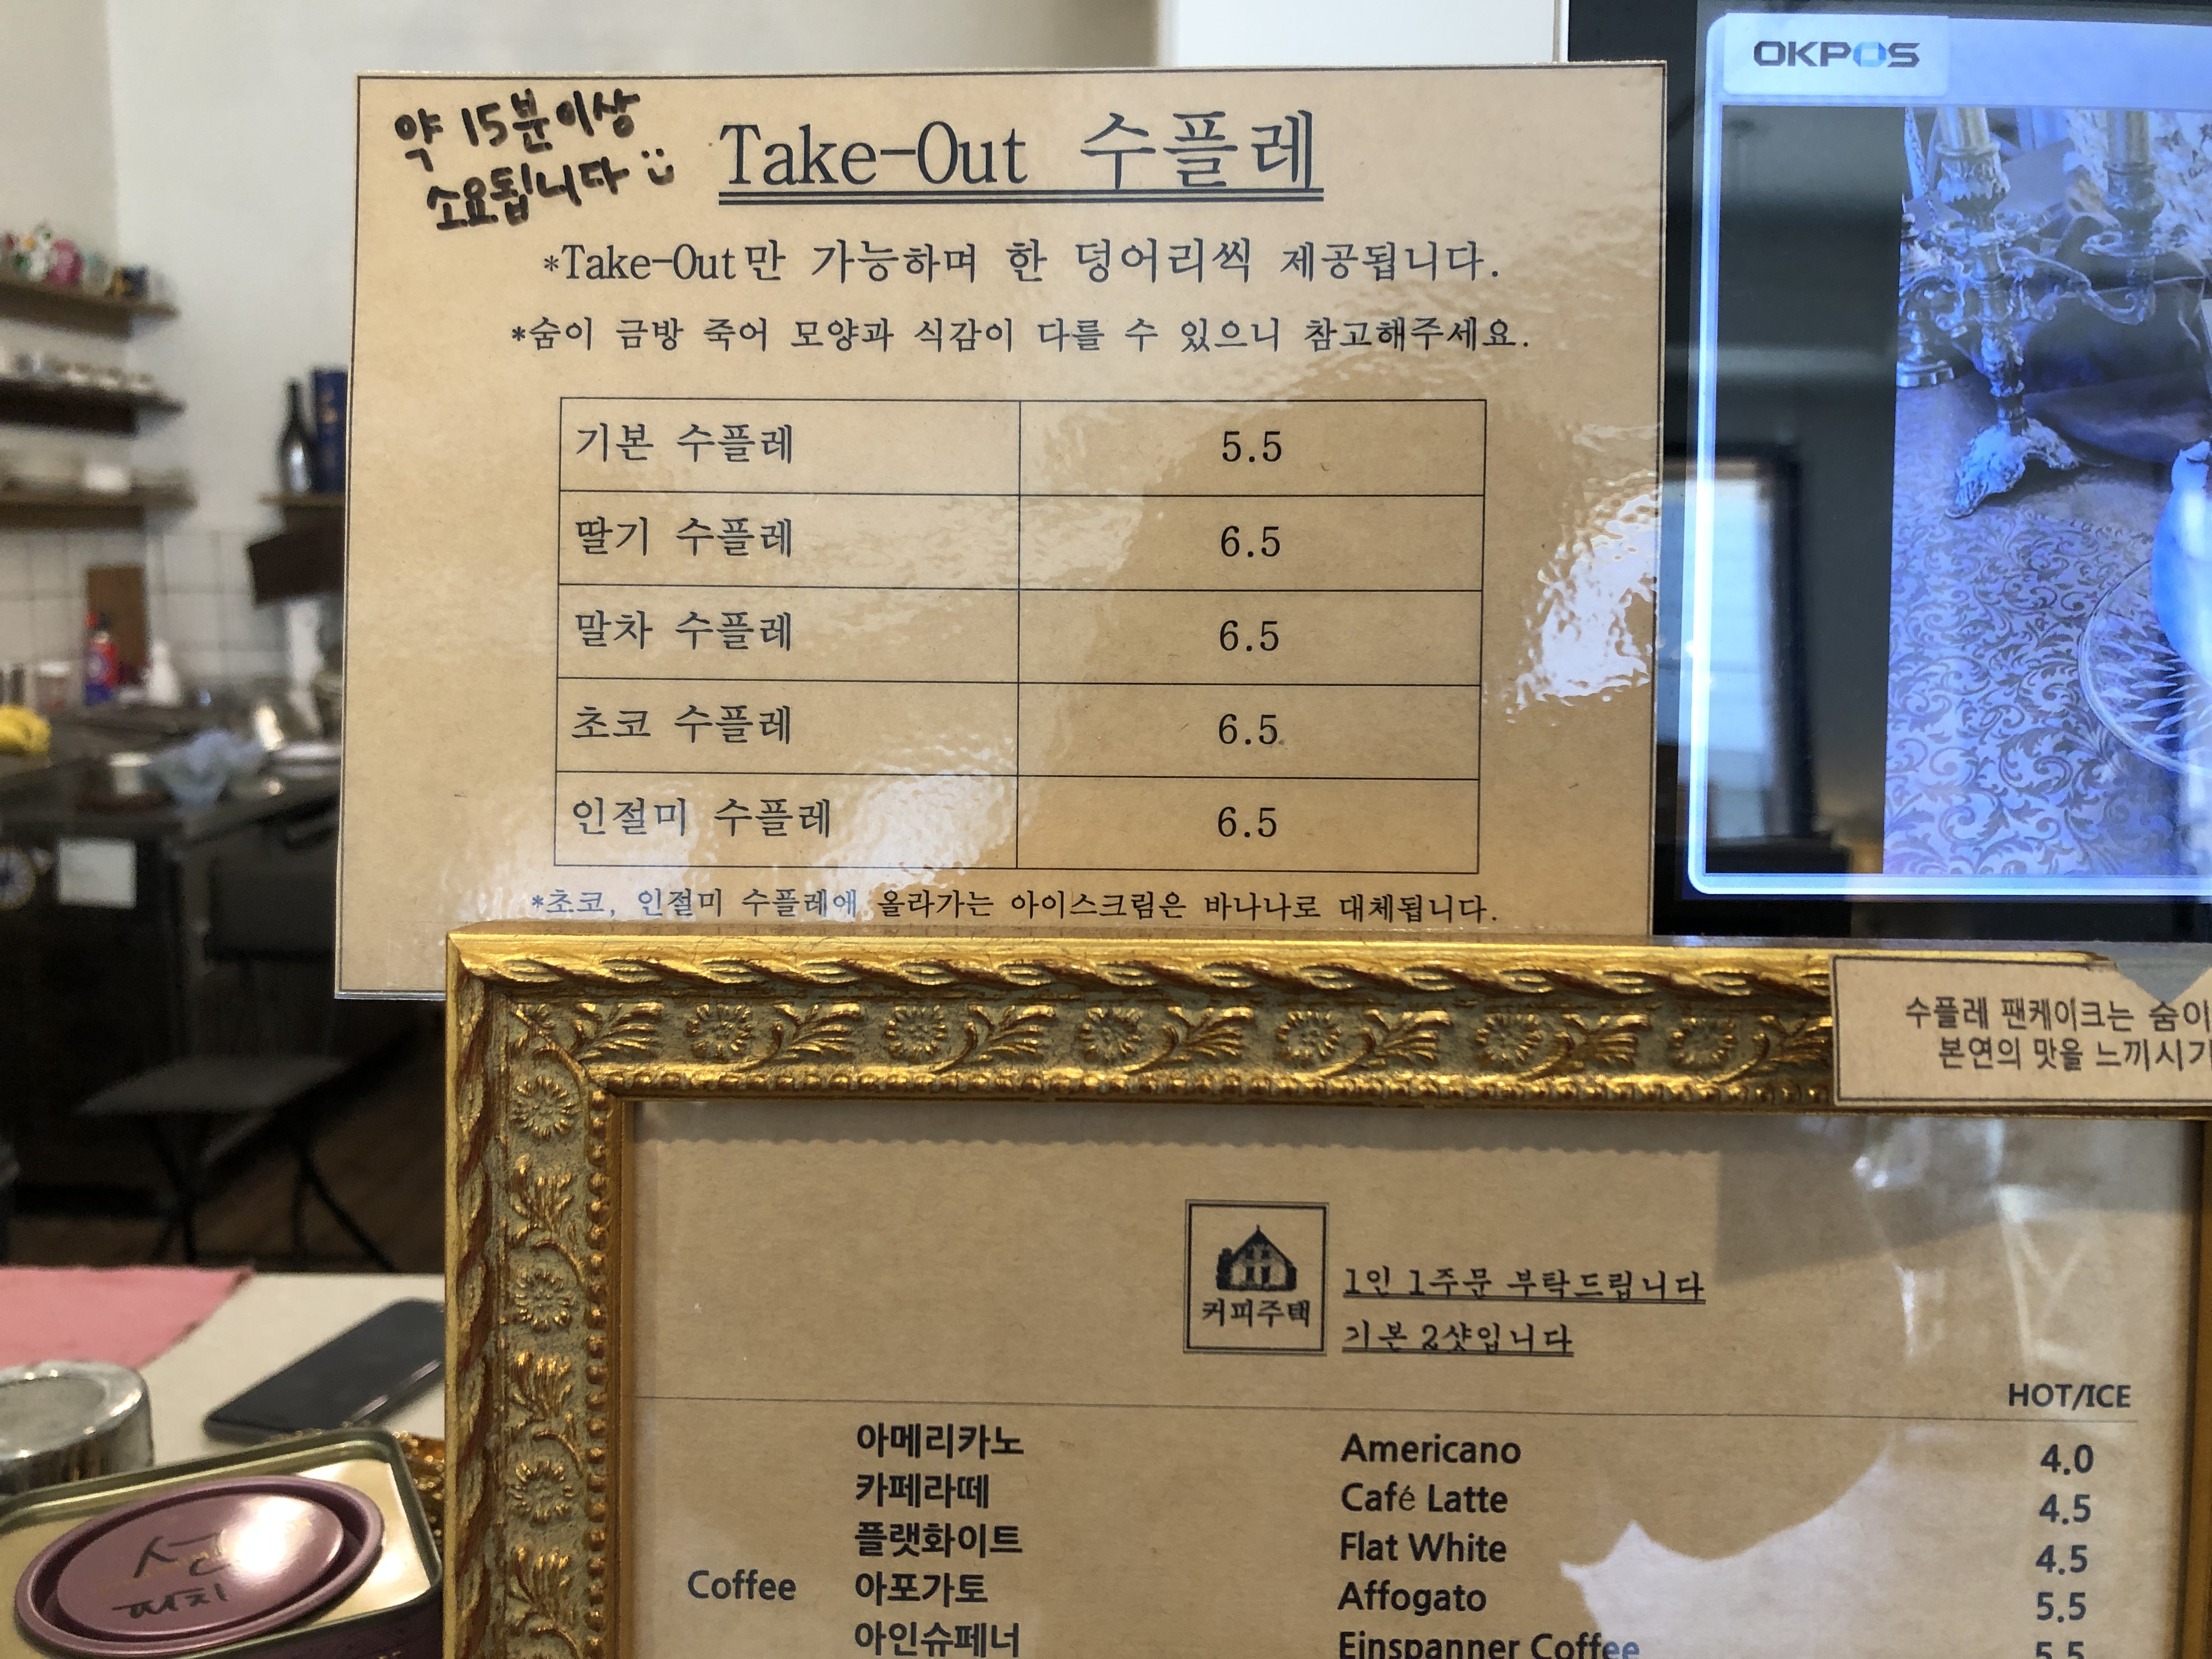 약 15분이상
소요됩니다 :)
Take-Out 수플레
*Take-Out만 가능하며 한 덩어리씩 제공됩니다.
*숨이 금방 죽어 모양과 식감이 다를 수 있으니 참고해주세요.
기본 수플레 5.5
딸기 수플레 6.5
말차 수플레 6.5
초코 수플레 6.5
인절미 수플레 6.5
*초코, 인절미 수플레에 올라가는 아이스크림은 바나나로 대체됩니다.
OKPOS
수플레 팬케이크는 숨이
본연의 맛을 느끼시기
커피주택
1인 1주문 부탁드립니다
기본 2샷입니다
HOT/ICE
Coffee
아메리카노 Americano 4.0
카페라떼 Café Latte 4.5
플랫화이트 Flat White 4.5
아포가토 Affogato 5.5
아인슈페너 Einspanner Coffee 5.5